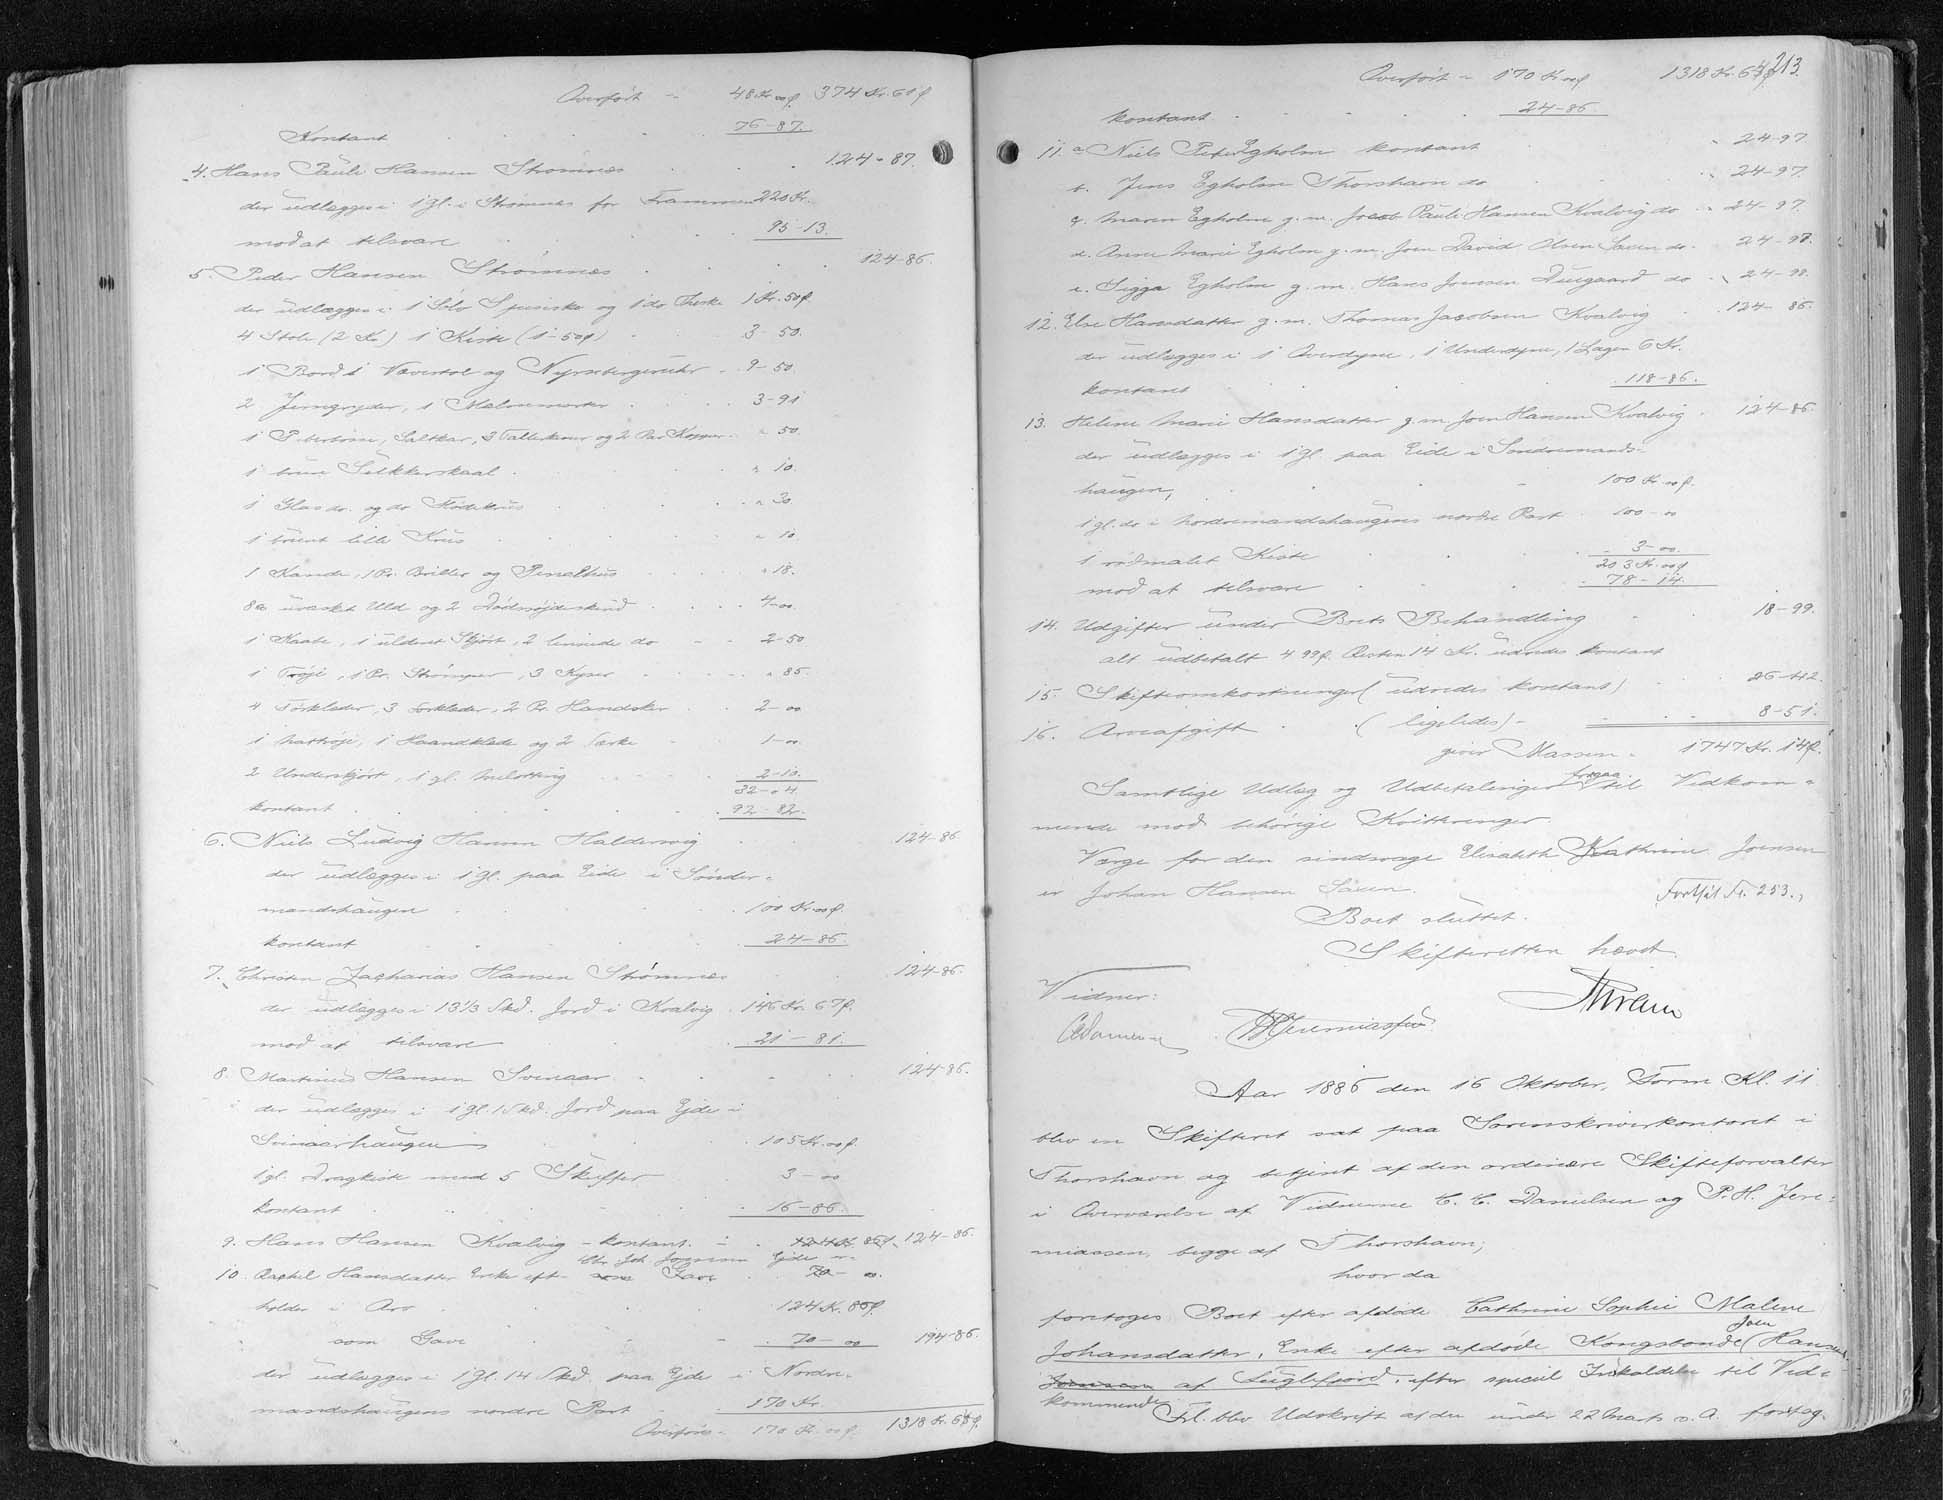 Overført - 48 Kr. 00 ø. 374 Kr. 61 ø
Kontant 76-87.
4. Hans Pauli Hansen Strømnæs 124-87.
der udlægges i 1 gl. i Strømnæs for Frammen 220 Kr.
mod at tilsvare 95-13.
5. Peder Hansen Strømnæs 124-86.
der udlægges i 1 Sølv Spiseske og 1 do Theske 1 Kr. 50 ø
4 Stole (2 Kr.) 1 Kiste (1-50 ø) 3-50.
1 Bord 1 Væverstol og Nyrnbergeruhr 9-50.
2 Jerngryder, 1 3-91
1 Peberbøsse, Saltkar, 3 Tallerkener og 2 Par Kopper " 50.
1 Sukkerskaal " 10.
1 Glas do. og do Flødekrus " 30
1 lille Krus " 10.
1 Kande, 1 Pr. Briller og Penalhus " 18.
8 uvasket Uld og 2 4-00.
1 Kaabe, 1 uldent Skjørt, 2 linnede do 2-50
1 Trøje, 1 Pr. Strømper, 3 Kyser " 85.
4 Tørklæder, 3 Forklæder, 2 Pr. Handsker 2-00
1 Nattrøje, 1 Haandklæde og 2 Særke 1-00.
2 Underskjørt, 1 gl. 2-10.
32-04.
kontant 92-82.
6. Niels Ludvig Hansen Haldersvig 124-86
der udlægges i 1 gl. paa Eide i Sønder-
mandshaugen 100 Kr. 00 ø.
kontant 24-86.
7. Christen Zacharias Hansen Strømnæs 124-86.
der udlægges i 13 1/3 Skd. Jord i Kvalvig 146 Kr. 67 ø.
mod at tilsvare 21-81.
8. Martinus Hansen Svinaar 124-86.
der udlægges i 1 gl. 1 Skd. Jord paa Ejde i
Svinaarhaugen 105 Kr. 00 ø.
1 gl. Dragkiste med 5 Skuffer 3-00
kontant 16-86.
9. Hans Hansen Kvalvig - kontant. 124 Kr. 86 ø. 124-86.
Chr. Joh. Joensen Ejde
10. Rachel Hansdatter Enke eft. Gave 70- 00.
holder i Arv 124 Kr. 86 ø.
som Gave 70-00 194-86.
der udlægges i 1 gl. 14 Skd. paa Ejde i Nordre-
mandshaugens nordre Part 170 Kr.
Overføres - 170 Kr. 00 ø. 1318 Kr. 64 ø.
213.
Overført - 170 Kr. 00 ø 1318 Kr. 64 ø
kontant 24-86.
11. a Niels Peter Egholm kontant 24-97
b. Jens Egholm Thorshavn do 24-97.
c. Maren Egholm g. m. Jacob Pauli Hansen Kvalvig do 24-97.
d. Anne Marie Egholm g. m. Joen David Olsen Saxen do. 24-97.
e. Sigga Egholm g. m. Hans Joensen Duugaard do 24-98.
12. Else Hansdatter g. m. Thomas Jacobsen Kvalvig 124-86.
der udlægges i 1 Overdyne, 1 Underdyne, 1 Lagen 6 Kr.
kontant 118-86.
13. Helene Marie Hansdatter g. m. Joen Hansen Kvalvig 124-86.
der udlægges i 1 gl. paa Eide i Søndremands-
haugen, 100 Kr. 00 ø.
1 gl. do i Nordremandshaugens nordre Part 100-00
1 rødmalet Kiste 3-00.
203 Kr. 00 ø
mod at tilsvare 78-14.
14. Udgifter under Boets Behandling 18-99.
alt udbetalt 4 99 ø. Resten 14 Kr. udredes kontant
15. Skifteomkostninger (udredes kontant) 26-42.
16. Arveafgift (ligeledes) - 8-51.
giver Massen. 1747 Kr. 14 ø.
Samtlige Udlæg og Udbetalinger foregaa til Vedkom-
mende mod behørige Kvitteringer
Værge for den sindsvage Elisabeth Kathrine Joensen
er Johan Hansen Saxen.
Fortsat Fr. 253.
Boet sluttet.
Skifteretten hævet
Vidner:
CDanielsen PHJeremiassen
Aar 1886 den 16 Oktober, Form. Kl. 11
blev en Skifteret sat paa Sorenskriverkontoret i
Thorshavn og betjent af den ordinære Skifteforvalter
i Overværelse af Vidnerne C. C. Danielsen og P. H. Jere-
miassen, begge af Thorshavn;
hvor da
foretoges Boet efter afdøde Cathrine Sophie Malene
Johansdatter, Enke efter afdøde Kongsbonde (Joen Hansen
Joensen af Fuglefjord, efter speciel Indkaldelse til Ved-
kommende
Frl. blev Udskrift af den under 22 Marts d. A. foretag-